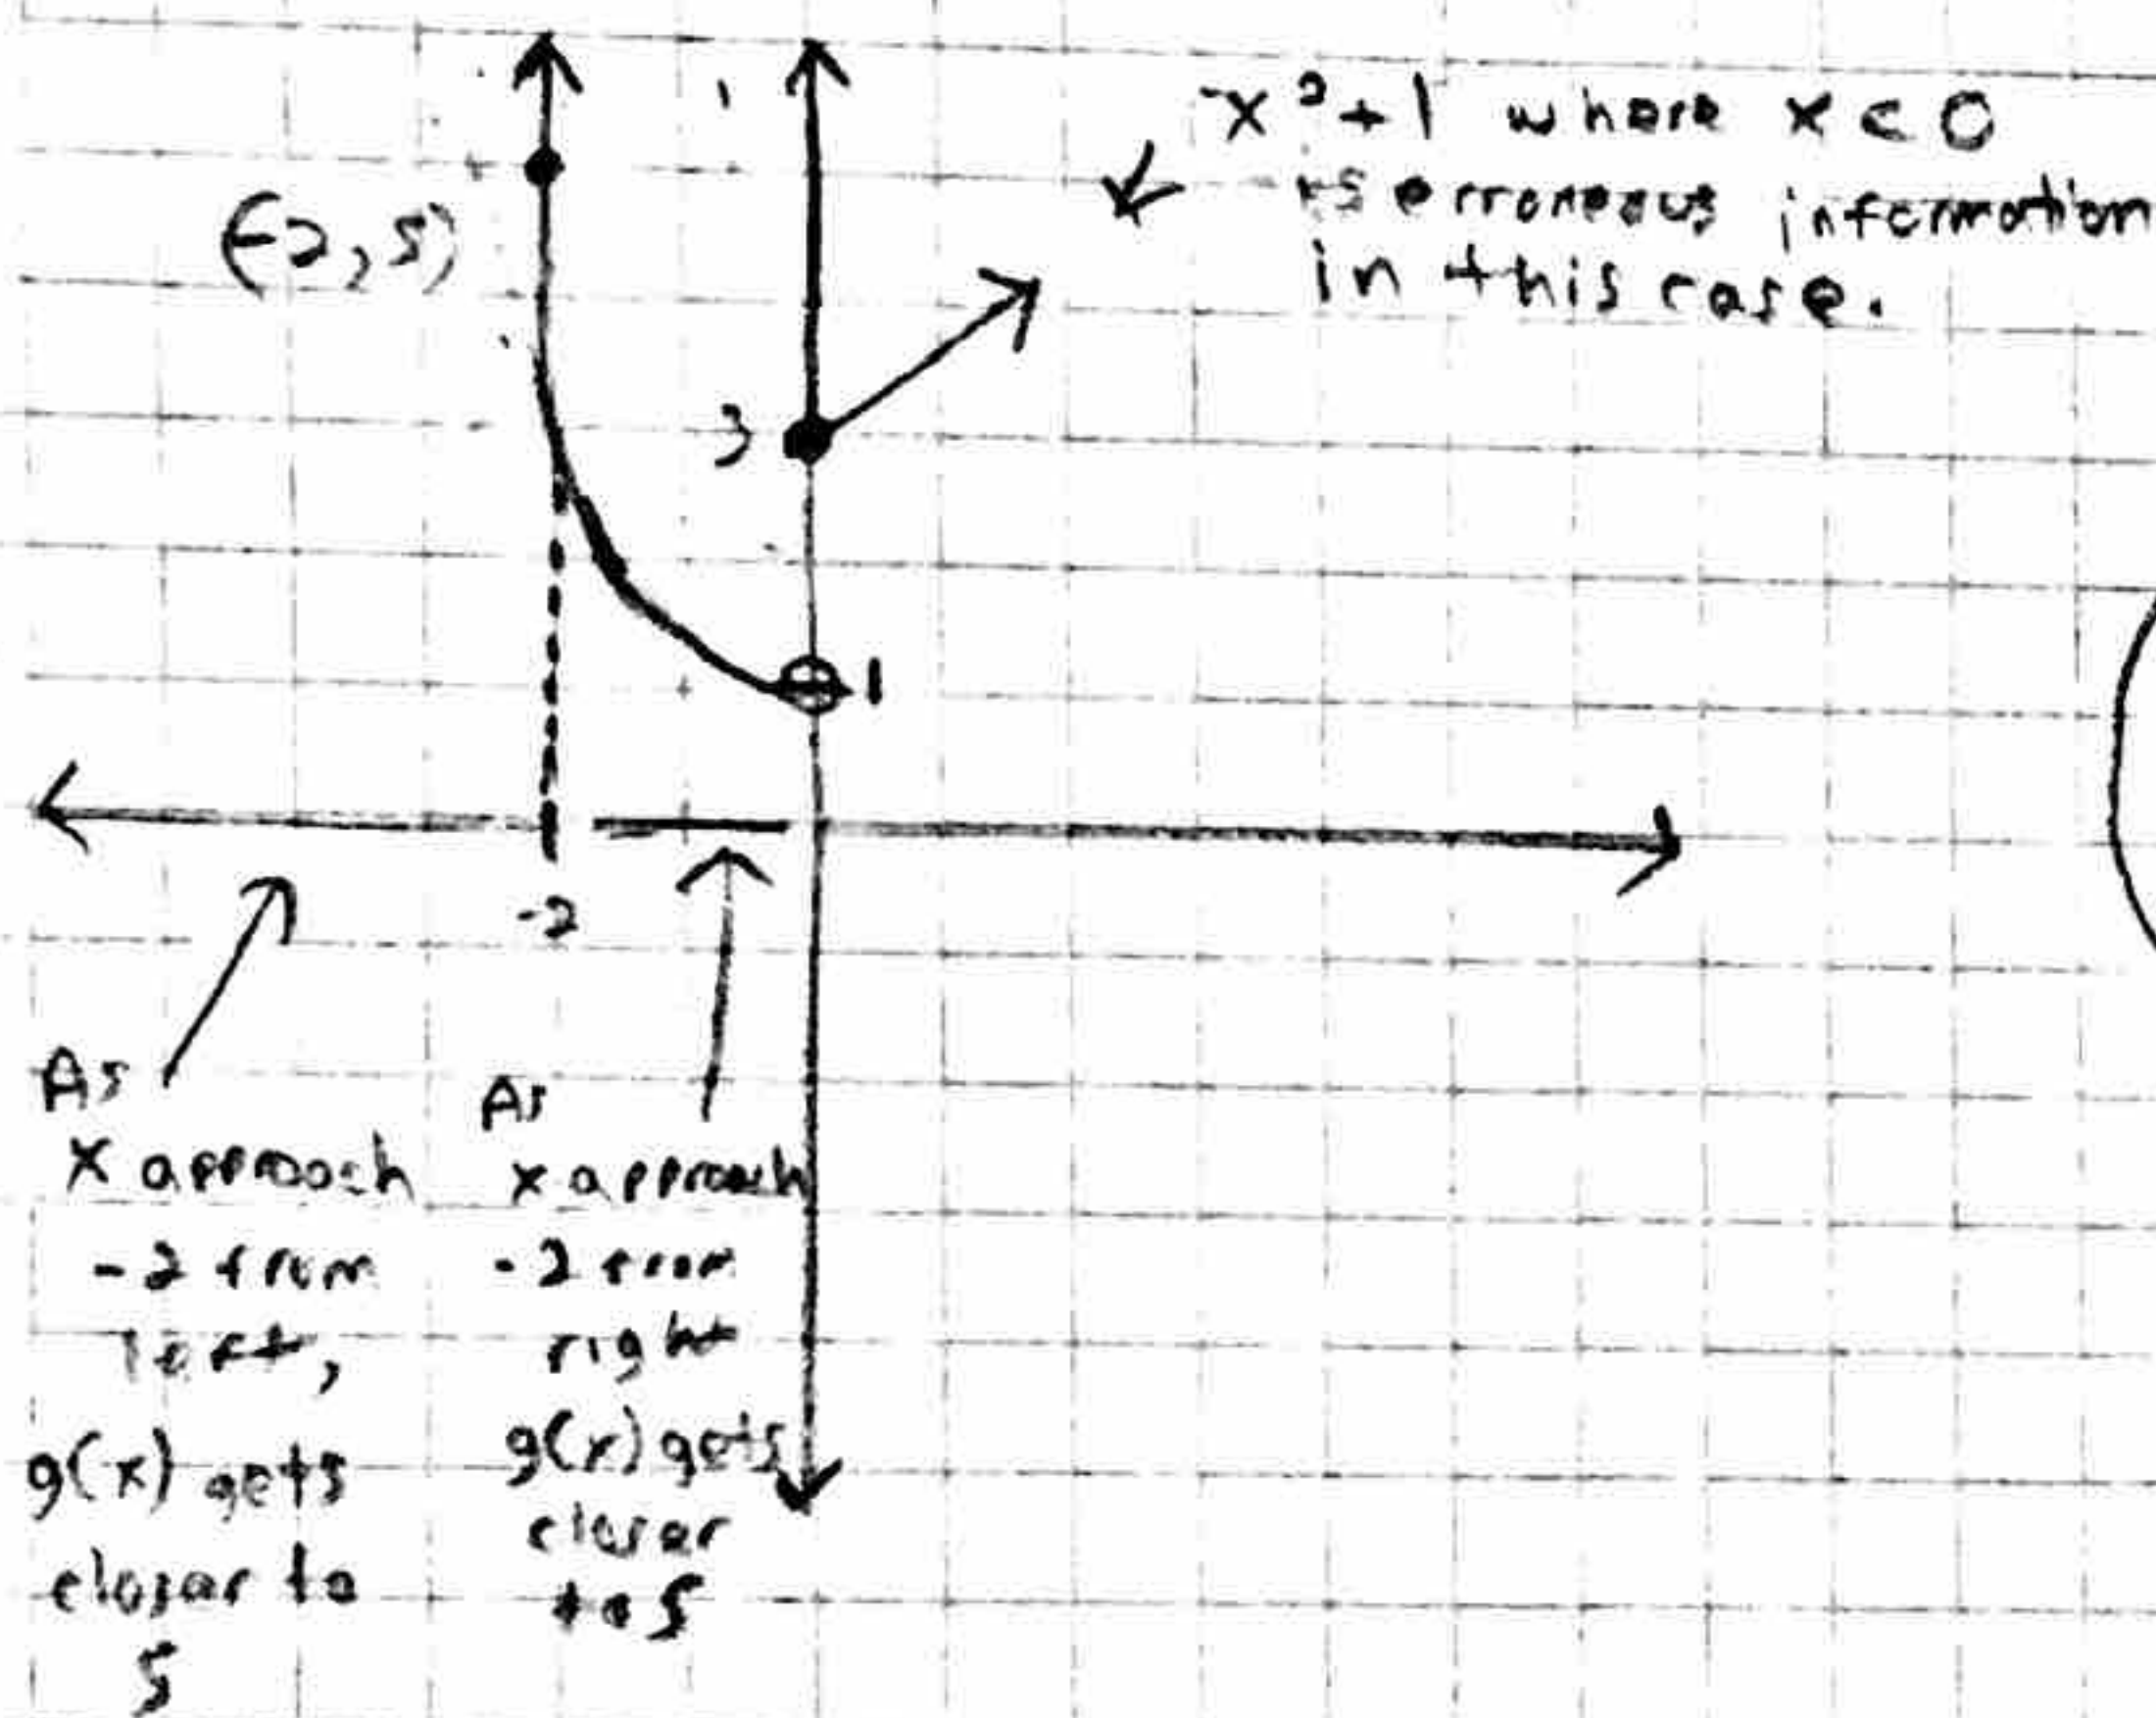 x²+1 where x < 0
is erroneous information
in this case.
(-2, 5)
3
1
-2
As
x approach
-2 from
left,
g(x) gets
closer to
5
As
x approach
-2 from
right
g(x) gets
closer
to 5